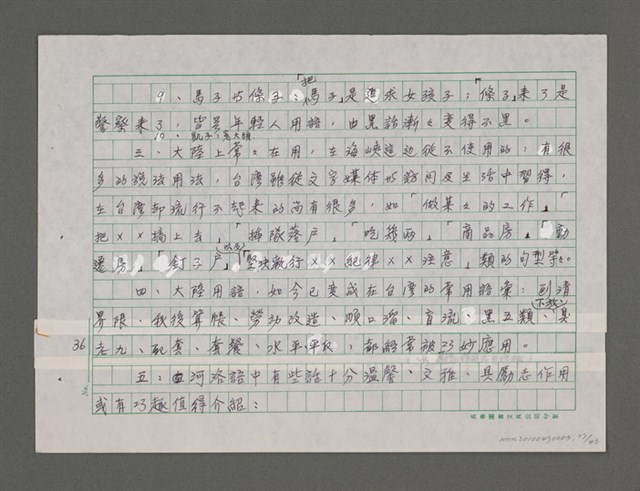 9、馬子與條子:「把馬子」是追求女孩子;「條子」來了是
警察來了,皆是年輕人用語,由黑話漸漸變得不黑。
10、凱子:
三、大陸上常常在用,在海峽這邊從不使用的:有很
多的說法用法,台灣雖從文字媒體或訪問及生活中習得,
在台灣卻流行不起來的尚有很多,如「做某某的工作」、「
把××搞上去」、「插隊落戶」、「吃幾兩」、「商品房」、「動
遷房」、「釘子戶」、「堅決執行××紀律××注意」類的句型等等。
四、大陸用語,如今已變成在台灣的常用語彙:劃清
界限、秋後算帳、勞動改造(下放)、順口溜、盲流、黑五類、臭
老九、配套、套餐、水平,都經常被巧妙應用。
五:河洛語中有些話十分溫馨、文雅、具勵志作用
或有巧趣值得介紹:
36
No.